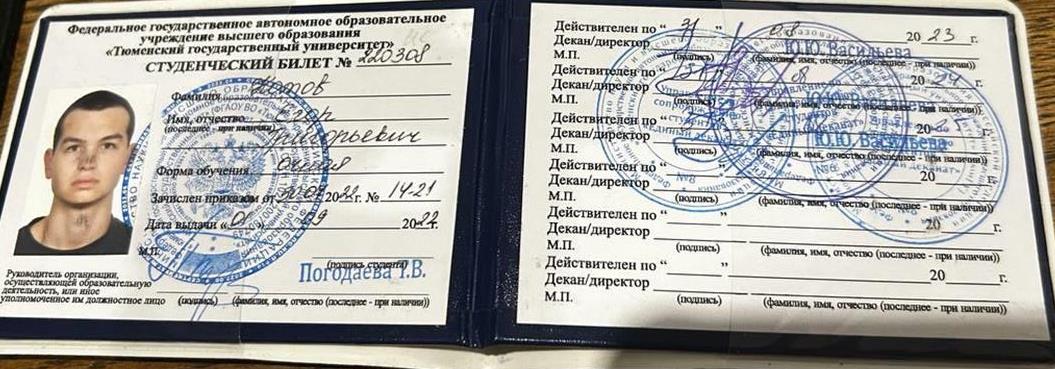 Федеральное государственное автономное образовательное
учреждение высшего образования
«Тюменский государственный университет»
СТУДЕНЧЕСКИЙ БИЛЕТ № 220308
Фамилия
Имя, отчество Егор
(последнее - при наличии) Григорьевич
Форма обучения очная
Зачислен приказом от 2022 г. № 14-21
Дата выдачи « 01 » 09 2022 г.
М.П. (подпись студента)
Погодаева Т.В.
Руководитель организации,
осуществляющей образовательную
деятельность, или иное
уполномоченное им должностное лицо (подпись) (фамилия, имя, отчество (последнее - при наличии))
Действителен по “ 31 ” 08 20 23 г.
Декан/директор Ю.Ю. Васильева
М.П. (подпись) (фамилия, имя, отчество (последнее - при наличии))
Действителен по “ 20 г.
Декан/директор
М.П. (подпись) (фамилия, имя, отчество (последнее - при наличии))
Действителен по “ 20 г.
Декан/директор Ю.Ю. Васильева
М.П. (подпись) (фамилия, имя, отчество (последнее - при наличии))
Действителен по “ ” 20 г.
Декан/директор
М.П. (подпись) (фамилия, имя, отчество (последнее - при наличии))
Действителен по “ ” 20 г.
Декан/директор
М.П. (подпись) (фамилия, имя, отчество (последнее - при наличии))
Действителен по “ ” 20 г.
Декан/директор
М.П. (подпись) (фамилия, имя, отчество (последнее - при наличии))